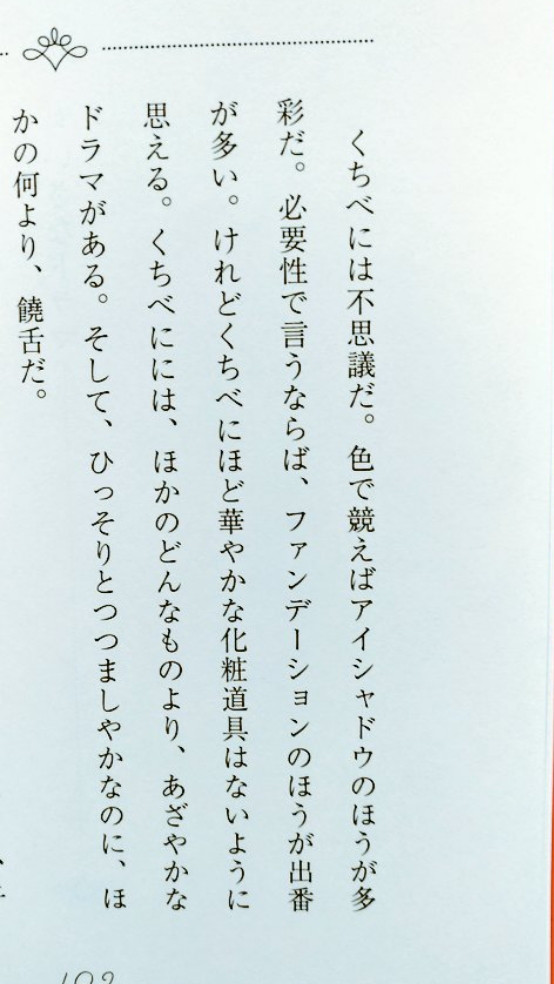 くちべには不思議だ。色で競えばアイシャドウのほうが多
彩だ。必要性で言うならば、ファンデーションのほうが出番
が多い。けれどくちべにほど華やかな化粧道具はないように
思える。くちべにには、ほかのどんなものより、あざやかな
ドラマがある。そして、ひっそりとつつましやかなのに、ほ
かの何より、饒舌だ。